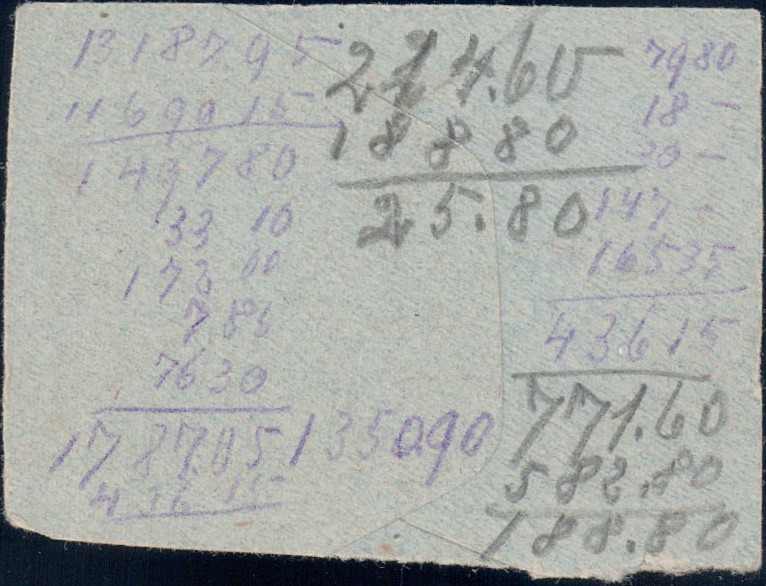 1318795
1169015
149780
33 10
173 00
7 85
7630
1787.05
436 15
214.60
18880
25.80
135090
7980
18 -
30 -
147 -
16535
43615
771.60
582.80
188.80